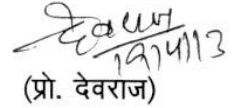 देवराज
19/4/13
(प्रो. देवराज)